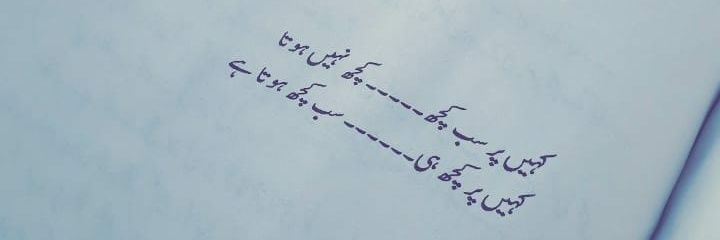 کہیں پر سب کچھ------کچھ نہیں ہوتا
کہیں پر کچھ ہی------سب کچھ ہوتا ہے